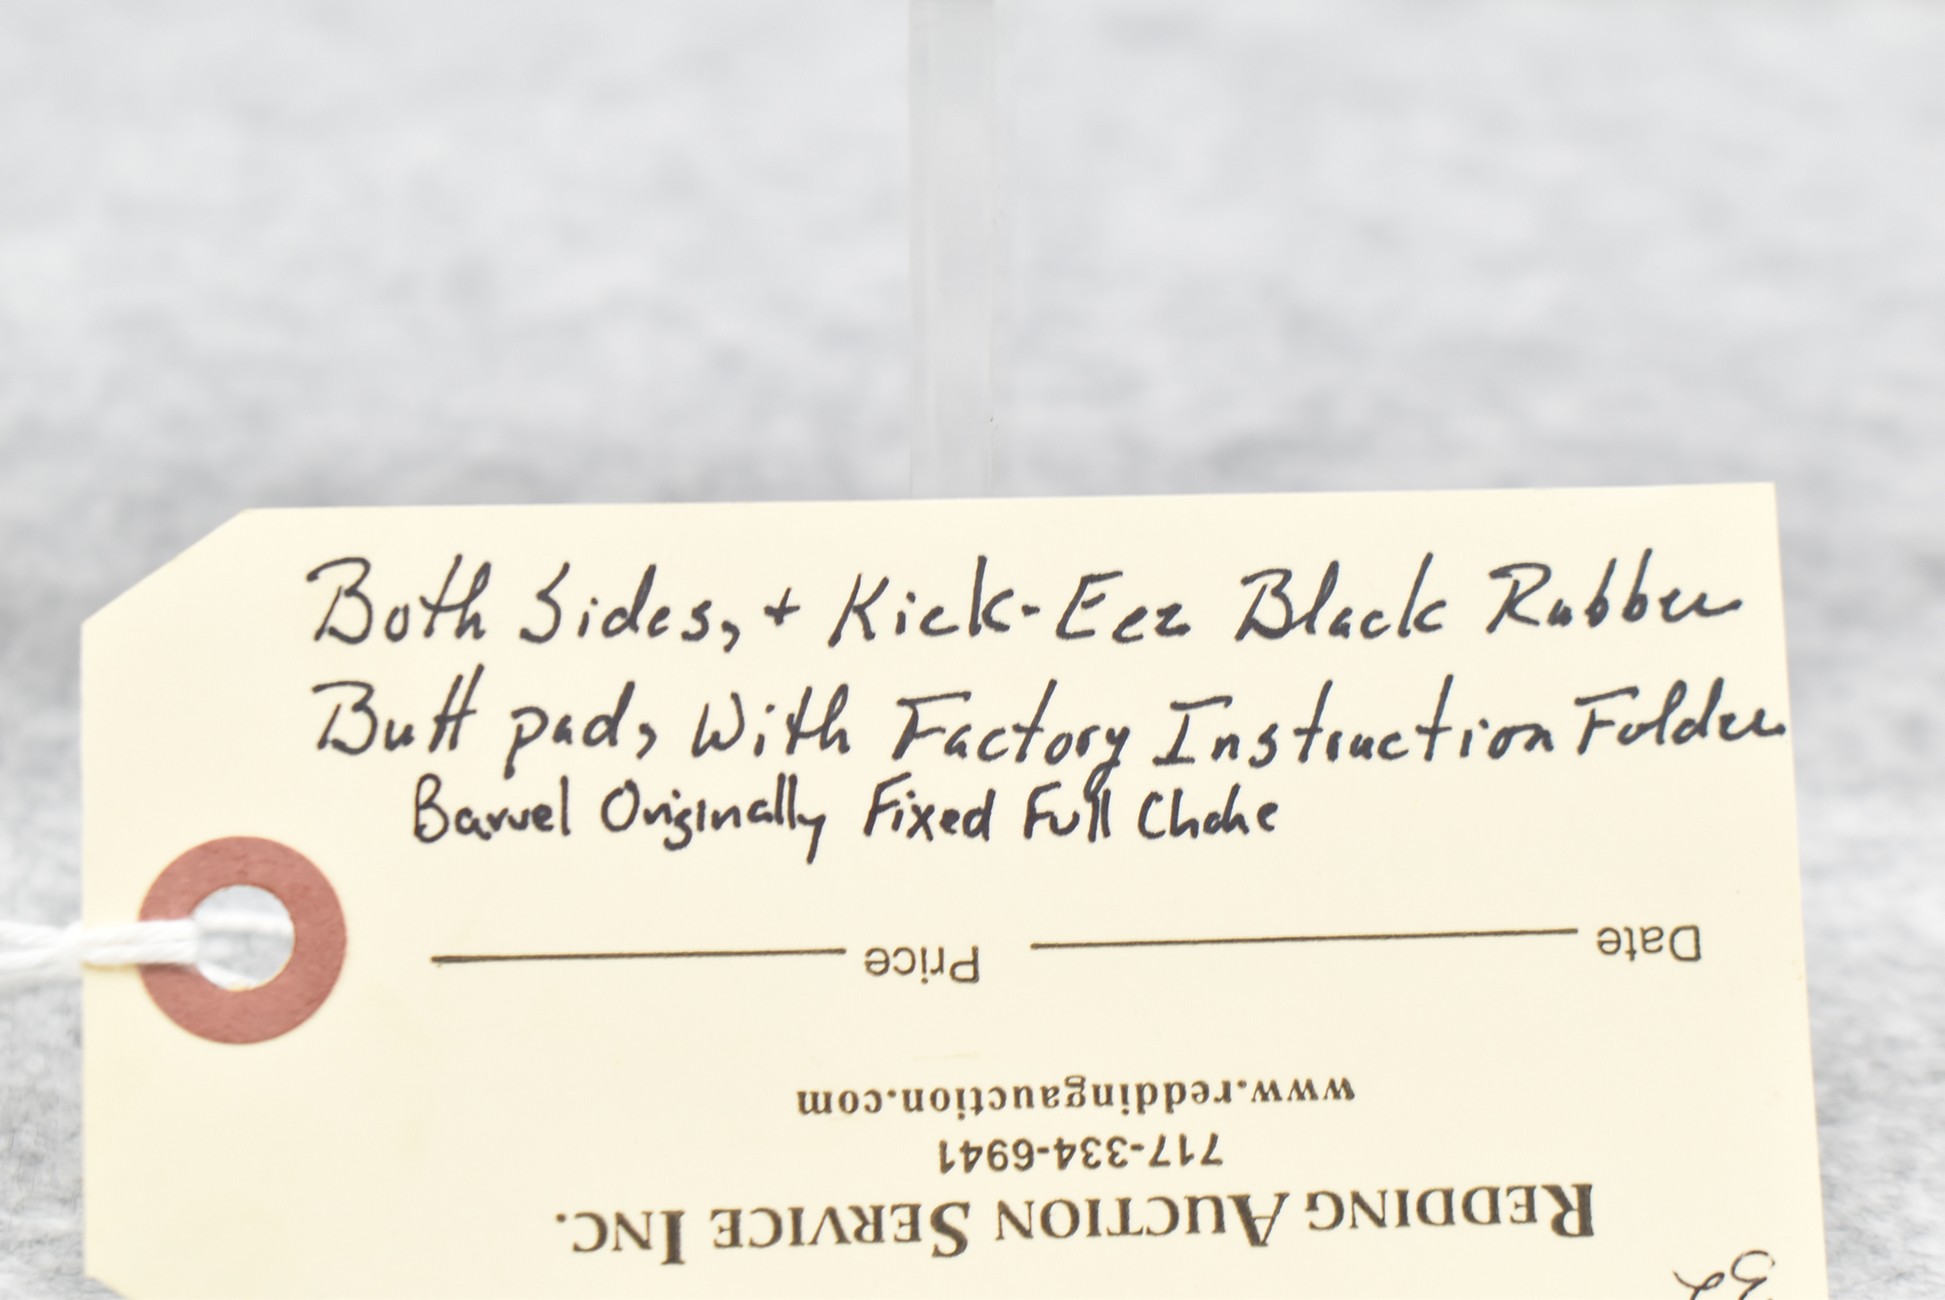 Both Sides, + Kick-Eez Black Rubber
Butt pad, With Factory Instruction Folder.
Barrel Originally Fixed Full Choke
Date Price
www.reddingauction.com
717-334-6941
REDDING AUCTION SERVICE INC.